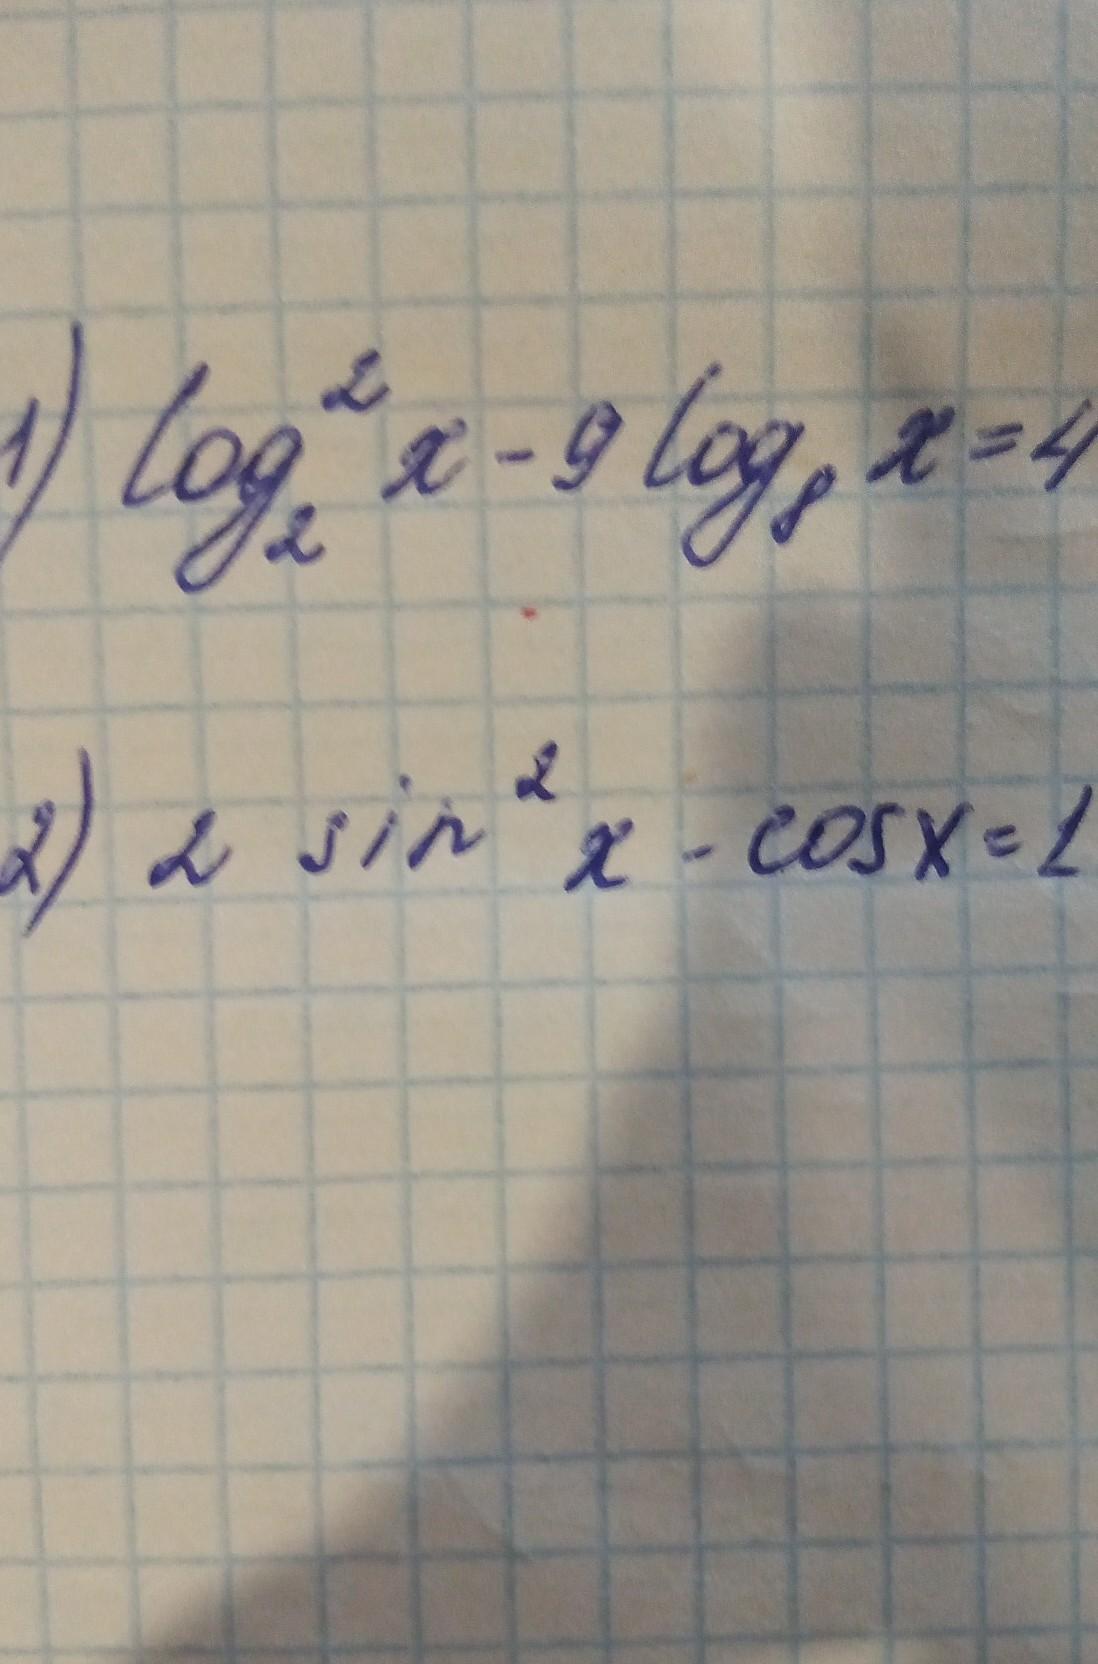 1) log₂² x - 9 log₈ x = 4
2) 2 sin² x - cosx = 1